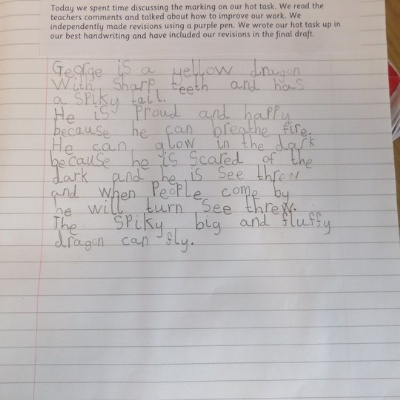 Today we spent time discussing the marking on our hot task. We read the
teachers comments and talked about how to improve our work. We
independently made revisions using a purple pen. We wrote our hot task up in
our best handwriting and have included our revisions in the final draft.
George is a yellow dragon
With Sharp teeth and has
a Spiky tail.
He is Proud and happy
because he can breathe fire.
He can glow in the dark
because he is Scared of the
dark and he is See threw
and when People come by
he will turn See threw.
The SPiky big and fluffy
dragon can fly.